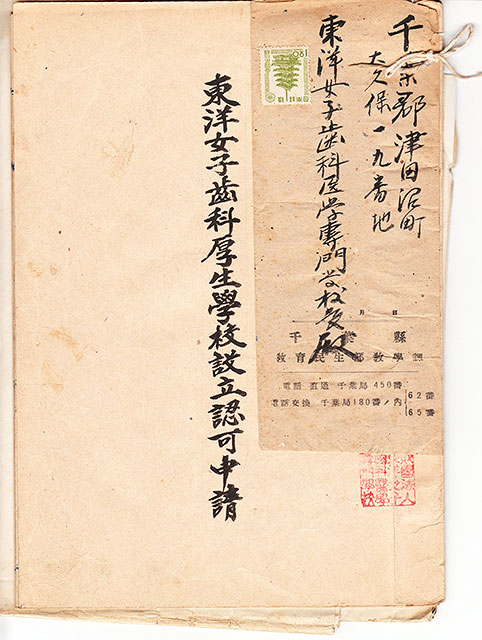 千葉郡津田沼町
大久保一九番地
東洋女子歯科医学専門学校長殿
月 日
千葉縣
教育民生部教學課
電話 直通 千葉局 450番
電話交換 千葉局180番ノ内 62番
65番
東洋女子歯科厚生學校設立認可申請